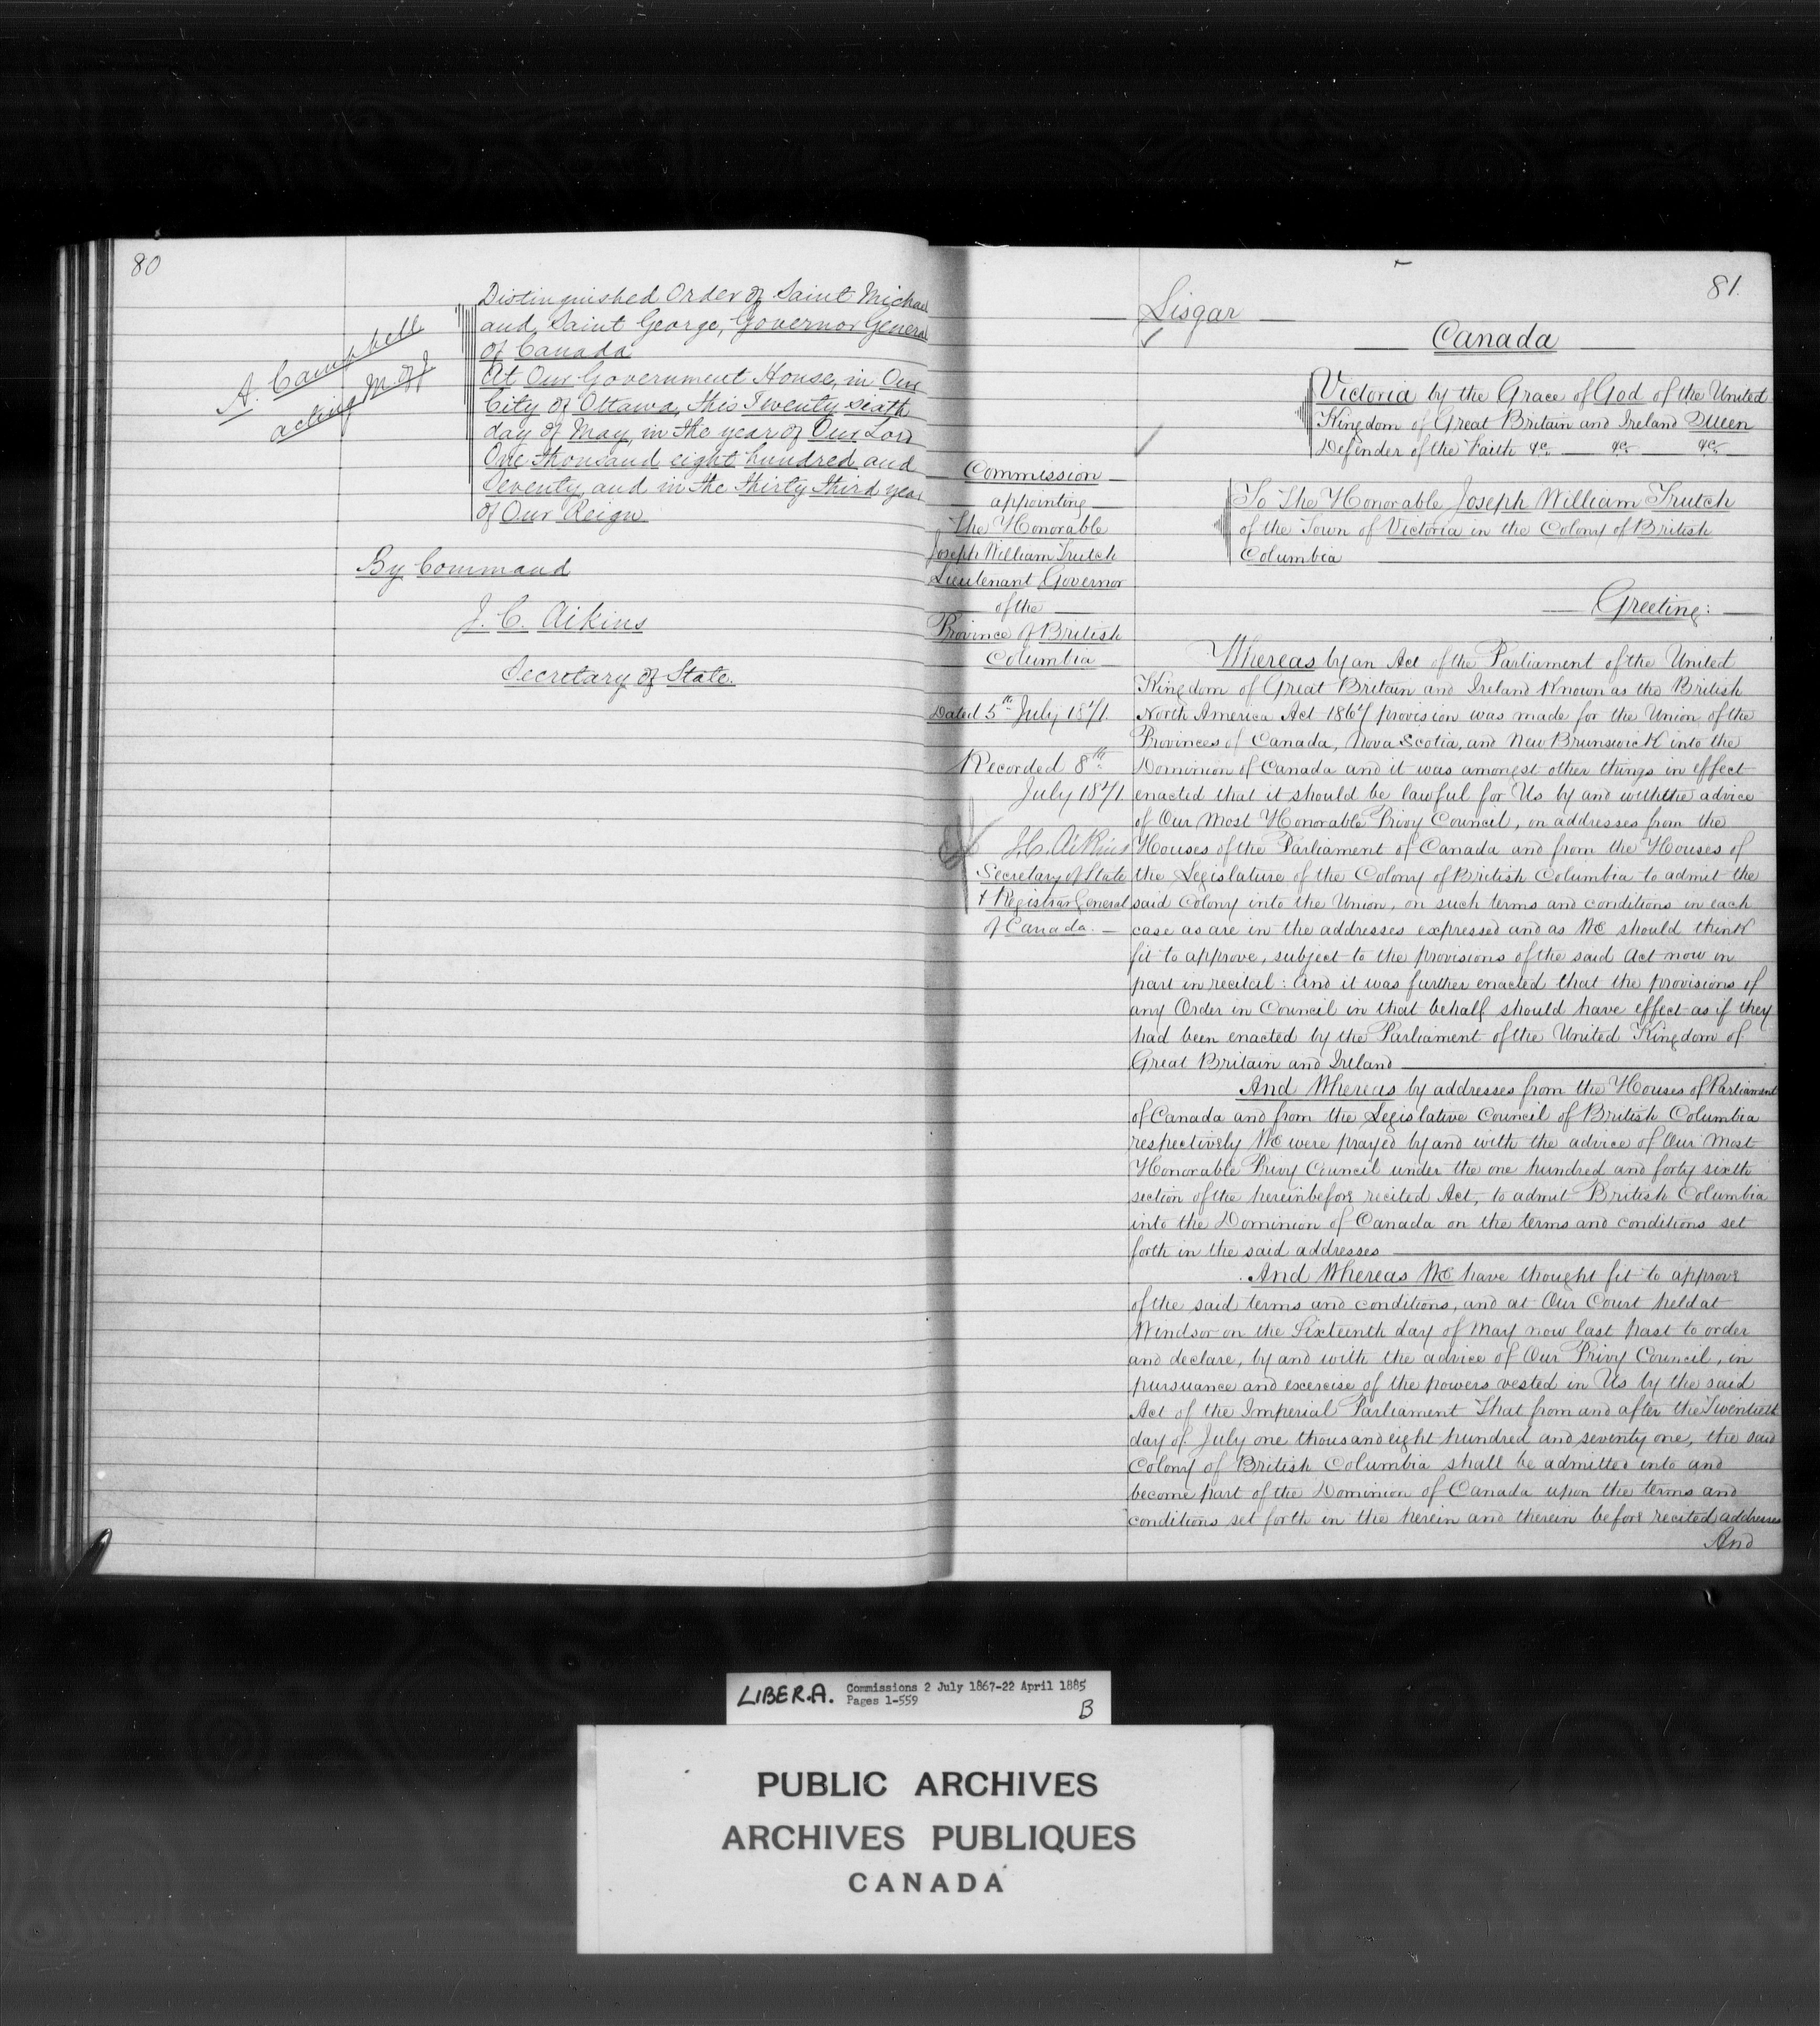 80
Distinguished Order of Saint Michael
and Saint George, Governor General
of Canada
At Our Government House, in Our
City of Ottawa, this Twenty sixth
day of May, in the year of Our Lord
One thousand eight hundred and
Seventy, and in the thirty third year
of Our Reign
A. Campbell
acting M. of J
By Command
J. C. Aikins
Secretary of State.
81.
Lisgar
Canada
Victoria by the Grace of God of the United
Kingdom of Great Britain and Ireland Queen
Defender of the Faith &c. &c. &c.
To The Honorable Joseph William Trutch
of the Town of Victoria in the Colony of British
Columbia
Greeting:
Commission
appointing
The Honorable
Joseph William Trutch
Lieutenant Governor
of the
Province of British
Columbia
Dated 5th July 1871.
Recorded 8th
July 1871.
J.C. Aikins
Secretary of State
& Registrar General
of Canada.
Whereas by an Act of the Parliament of the United
Kingdom of Great Britain and Ireland Known as the British
North America Act 1867 provision was made for the Union of the
Provinces of Canada, Nova Scotia, and New Brunswick into the
Dominion of Canada and it was amongst other things in effect
enacted that it should be lawful for Us by and with the advice
of Our Most Honorable Privy Council, on addresses from the
Houses of the Parliament of Canada and from the Houses of
the Legislature of the Colony of British Columbia to admit the
said Colony into the Union, on such terms and conditions in each
case as are in the addresses expressed and as We should think
fit to approve, subject to the provisions of the said Act now in
part in recital: And it was further enacted that the provisions of
any Order in Council in that behalf should have effect as if they
had been enacted by the Parliament of the United Kingdom of
Great Britain and Ireland
And Whereas by addresses from the Houses of Parliament
of Canada and from the Legislative Council of British Columbia
respectively We were prayed by and with the advice of Our Most
Honorable Privy Council under the one hundred and forty sixth
section of the hereinbefore recited Act, to admit British Columbia
into the Dominion of Canada on the terms and conditions set
forth in the said addresses
And Whereas We have thought fit to approve
of the said terms and conditions, and at Our Court held at
Windsor on the Sixteenth day of May now last past to order
and declare, by and with the advice of Our Privy Council, in
pursuance and exercise of the powers vested in Us by the said
Act of the Imperial Parliament That from and after the Twentieth
day of July one thousand eight hundred and seventy one, the said
Colony of British Columbia shall be admitted into and
become part of the Dominion of Canada upon the terms and
conditions set forth in the herein and therein before recited addresses
And
LIBER.A. Commissions 2 July 1867-22 April 1885
Pages 1-559
B
PUBLIC ARCHIVES
ARCHIVES PUBLIQUES
CANADA